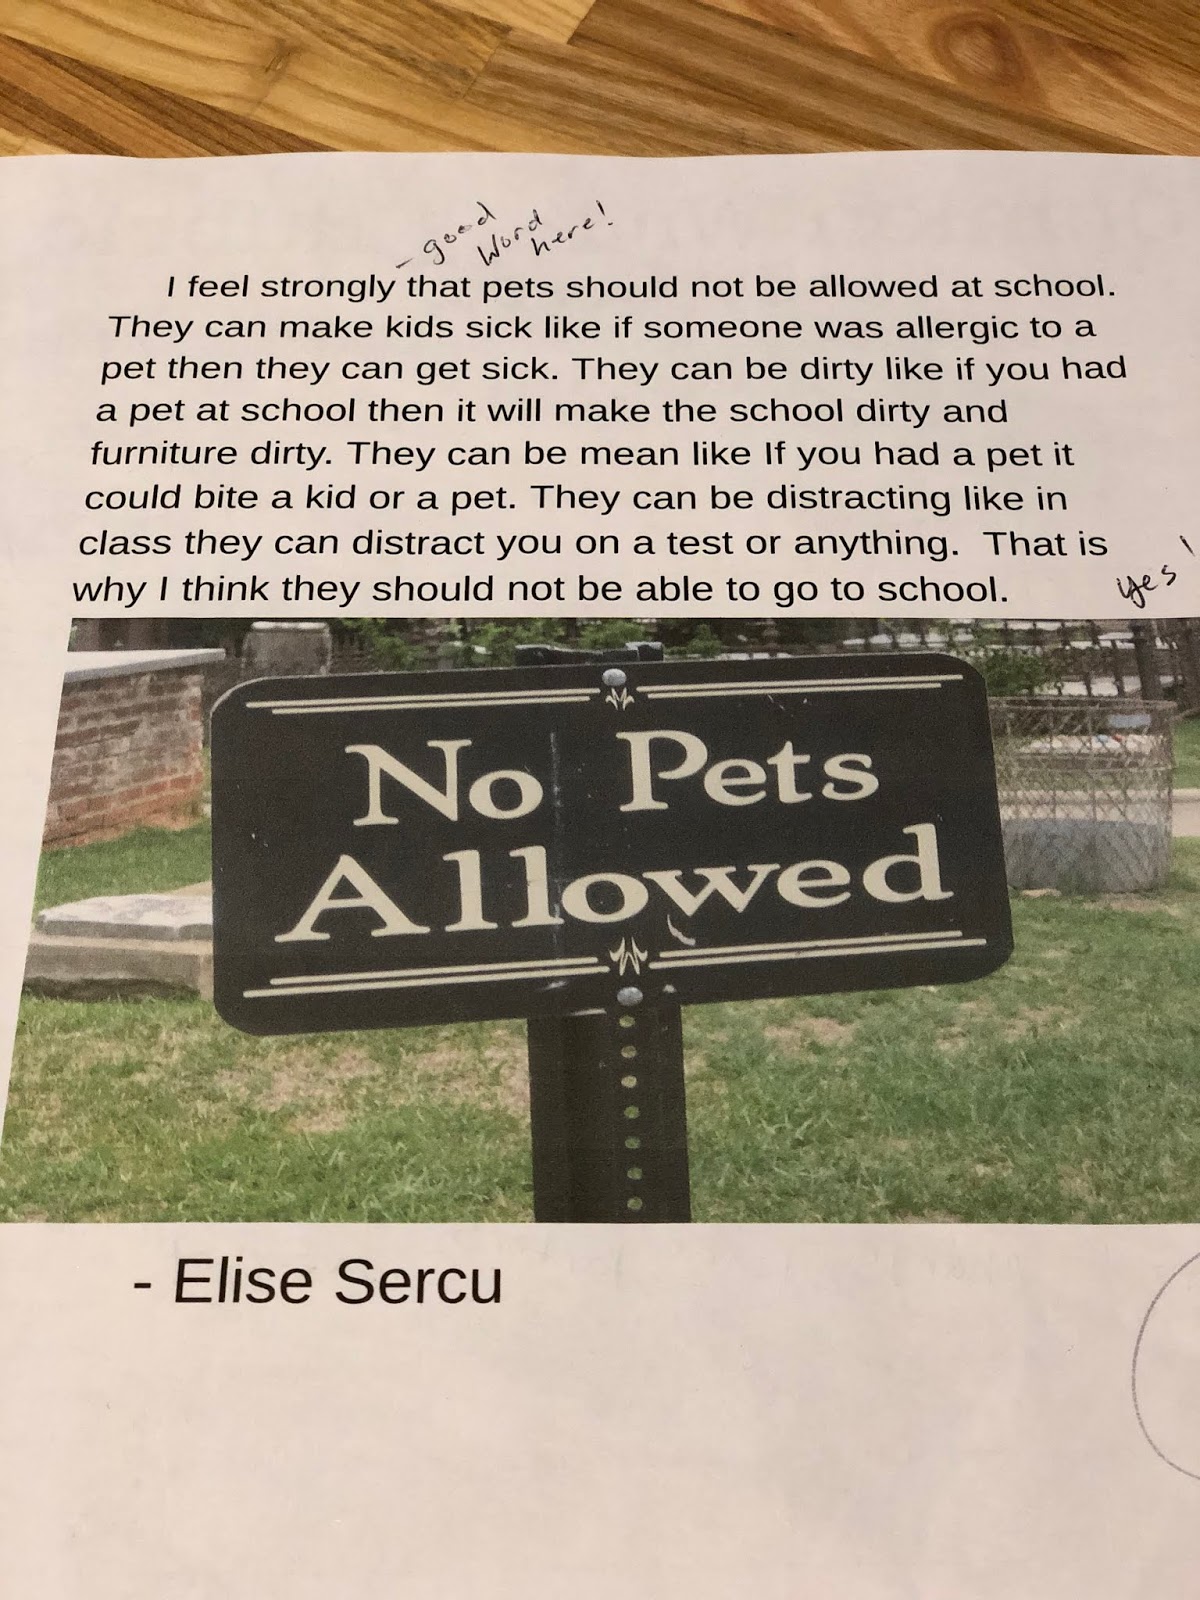 - good
word
here!
I feel strongly that pets should not be allowed at school.
They can make kids sick like if someone was allergic to a
pet then they can get sick. They can be dirty like if you had
a pet at school then it will make the school dirty and
furniture dirty. They can be mean like If you had a pet it
could bite a kid or a pet. They can be distracting like in
class they can distract you on a test or anything.  That is
why I think they should not be able to go to school.
yes!
No Pets
Allowed
- Elise Sercu